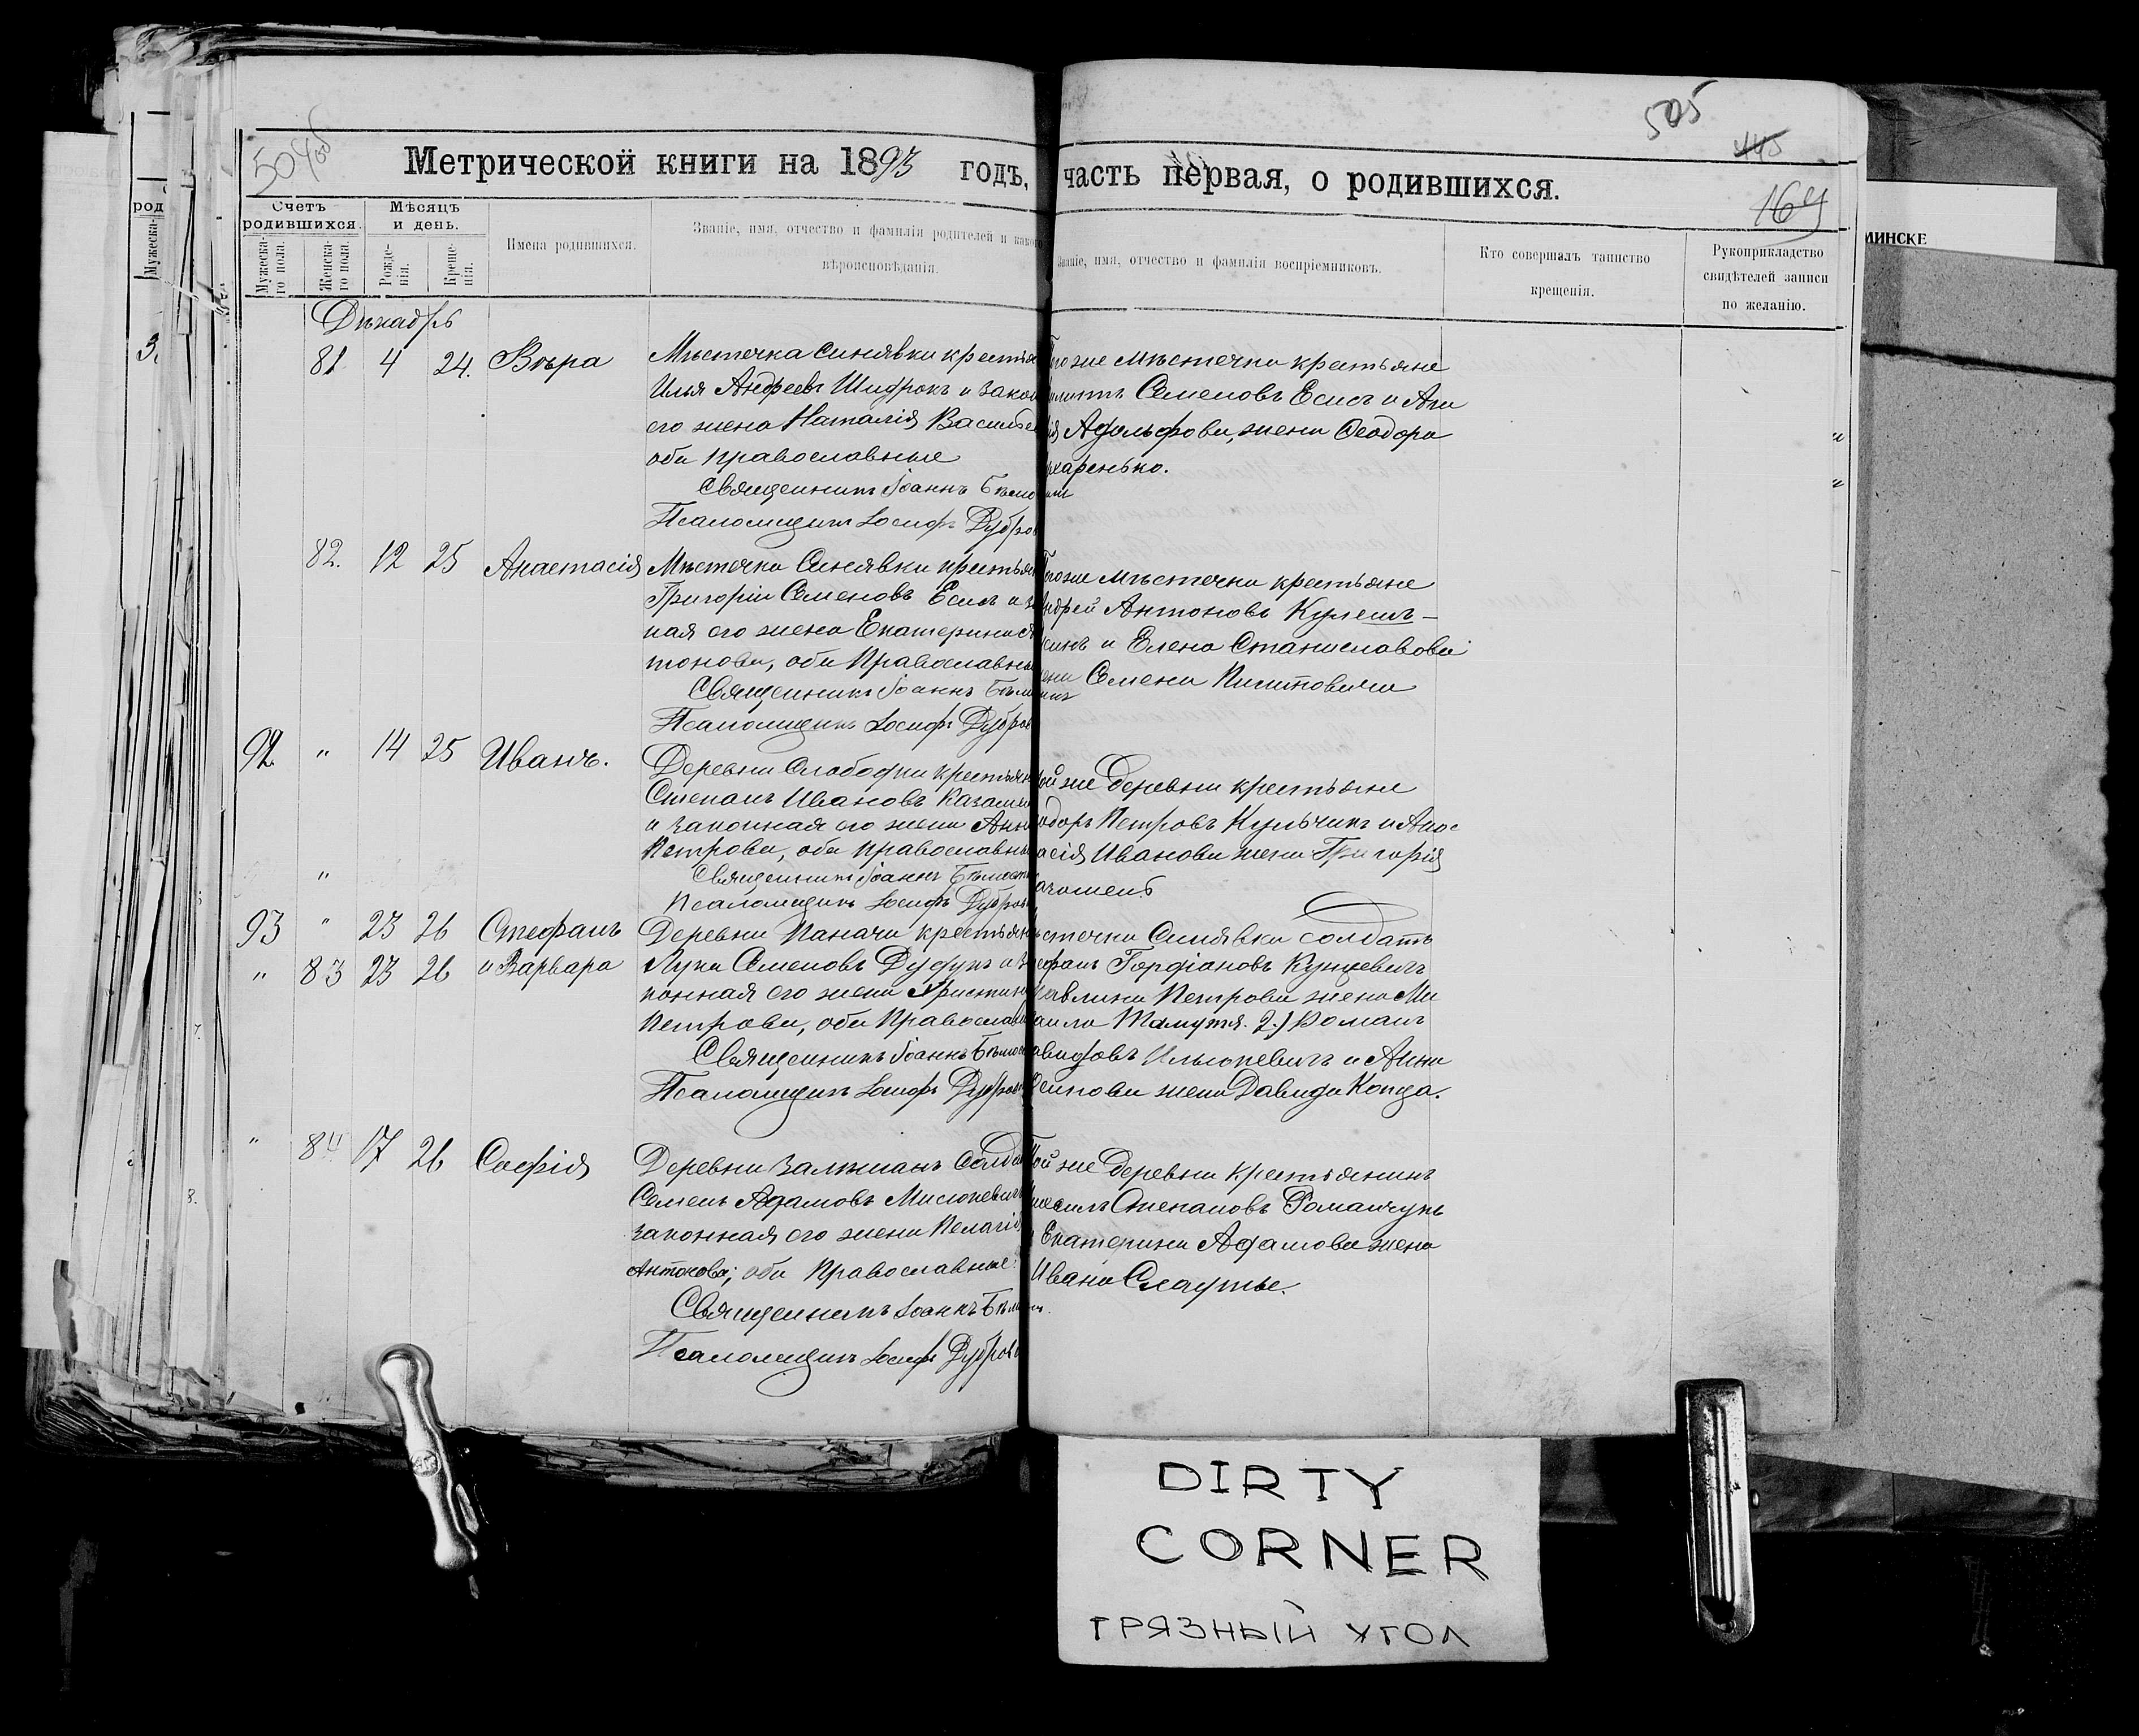 504 об
505
445
164
Метрической книги на 1893 годъ, часть первая, о родившихся.
Счетъ родившихся.
Мѣсяцъ и день.
Мужеска-го пола.
Женска-го пола.
Рожде-нія.
Креще-нія.
Имена родившихся.
Званіе, имя, отчество и фамилія родителей и какого
вѣроисповѣданія.
Званіе, имя, отчество и фамилія воспріемниковъ.
Кто совершалъ таинство
крещенія.
Рукоприкладство
свидѣтелей записи
по желанію.
род
Мужеска-
МИНСКЕ
Декабрь
81 4 24. Вѣра
Мѣстечка Синявки крестья
Илья Андреевъ Шидрокъ и закон
его жена Наталія Василье
оба православные
Священникъ Іоаннъ
Псаломщикъ Іосифъ Дубров
мѣстечка крестьяне
Семеновъ Есисъ и
Адольфова, жена Ѳеодора
82. 12 25 Анастасія
Мѣстечка Синявки крестьян
Григорій Семеновъ Есисъ и
ная его жена Екатерина
тонова, оба православны
Священникъ Іоаннъ
Псаломщикъ Іосифъ Дубров
мѣстечка крестьяне
Андрей Антоновъ Кулешъ-
и Елена Станиславова
Семена
92. " 14 25 Иванъ.
Деревни Слободки крестьян
Степанъ Ивановъ
и законная его жена Анн
Петрова, оба православны
Священникъ Іоаннъ
Псаломщикъ Іосифъ Дубров
же деревни крестьяне
Петровъ Кульчикъ и Анас
тасія Иванова жена Григорія
93 " 23 26 Стефанъ
" 83 23 26 и Варвара
Деревни Паначи крестьян
Лука Семеновъ Дудукъ и з
конная его жена Христина
Петрова, оба православн
Священникъ Іоаннъ
Псаломщикъ Іосифъ Дубров
Синявки солдатъ
Гордіановъ Куцевичъ
Павлина Петрова жена Ми
2.) Романъ
и Анна
жена Давида Копца.
" 84 17 26 Софія
Деревни Залѣшанъ Солда
Семенъ Адамовъ Мисюкевичъ
законная его жена Пелагія
Антонова; оба православные.
Священникъ Іоаннъ
Псаломщикъ Іосифъ Дубров
Той же деревни крестьянинъ
Степановъ Романчукъ
и Екатерина Адамова жена
Ивана
DIRTY
CORNER
ГРЯЗНЫЙ УГОЛ